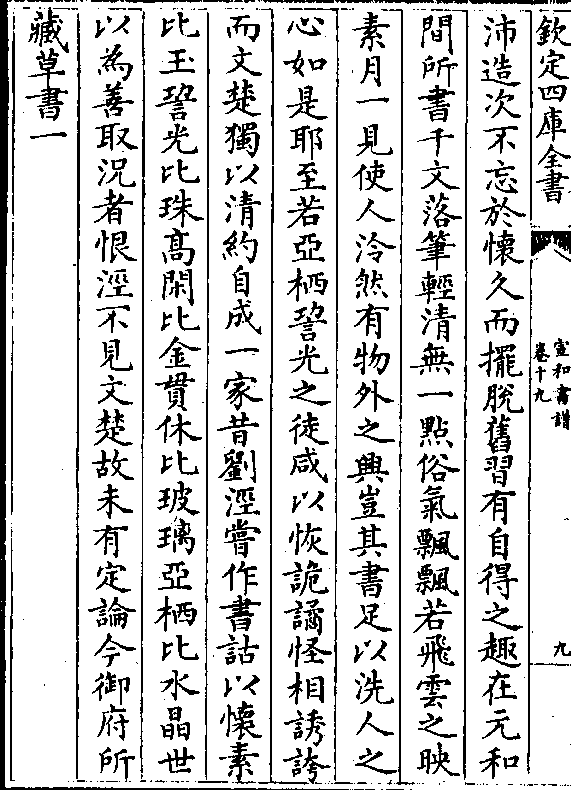 欽定四庫全書
宣和書譜
卷十九
九
沛造次不忘於懷久而擺脫舊習有自得之趣在元和
間所書千文落筆輕清無一點俗氣飄飄若飛雲之映
素月一見使人泠然有物外之興豈其書足以洗人之
心如是耶至若亞栖䛒光之徒咸以恢詭譎怪相誘誇
而文楚獨以清約自成一家昔劉涇嘗作書詁以懷素
比玉䛒光比珠髙閑比金貫休比玻璃亞栖比水晶世
以為善取況者恨涇不見文楚故未有定論今御府所
藏草書一